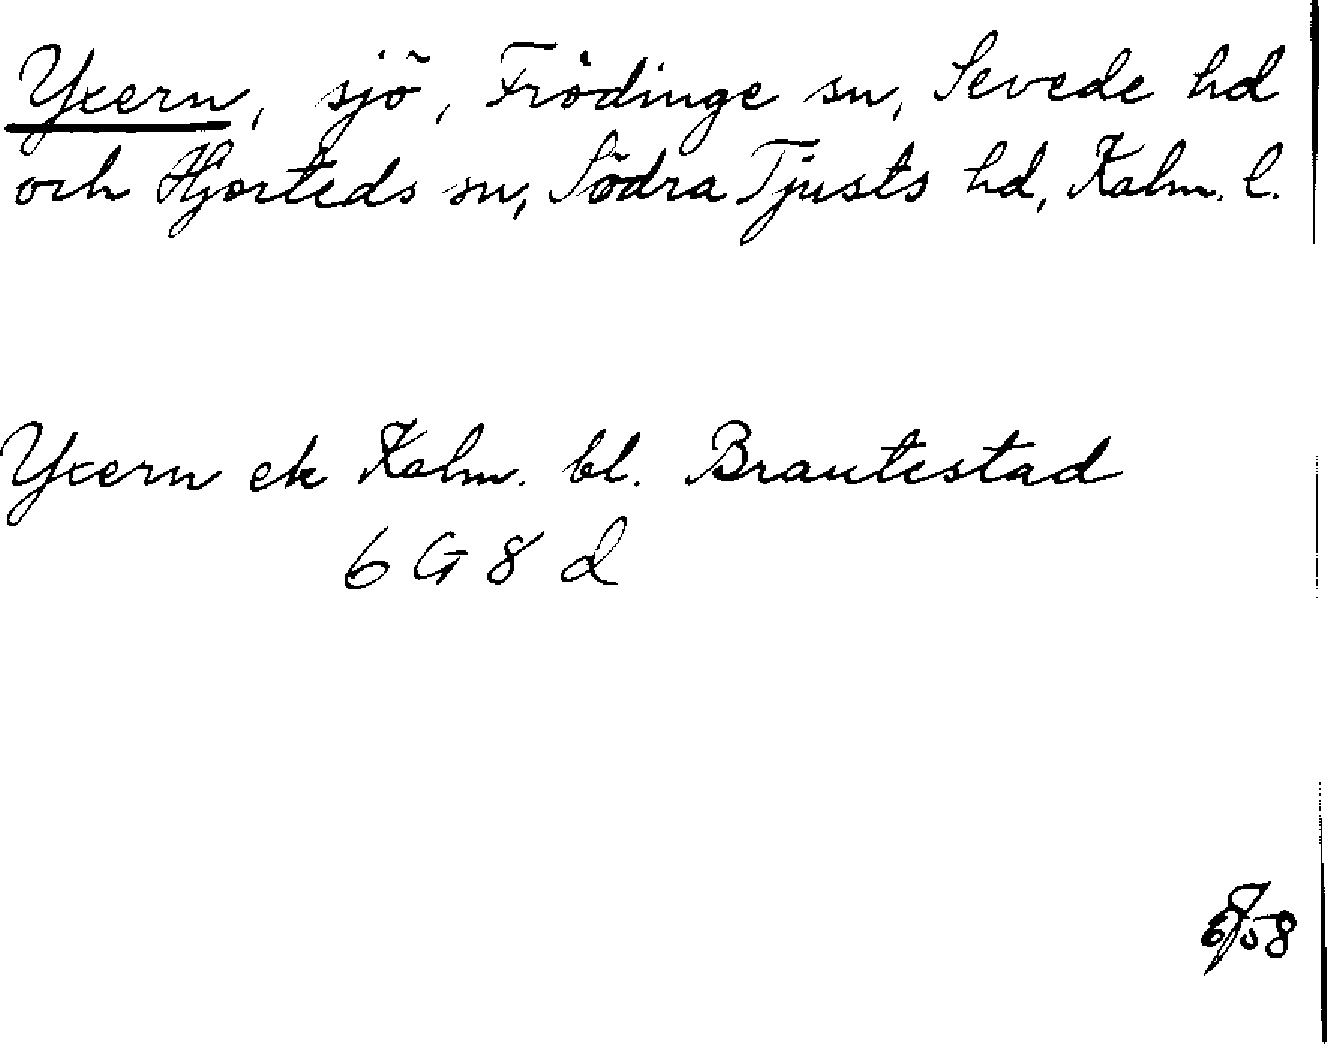 Yxern, sjö, Frödinge sn, Sevede hd
och Hjorteds sn, Södra Tjusts hd, Kalm. l.
Yxern ek Kalm. bl. Brantestad
6 G 8 d